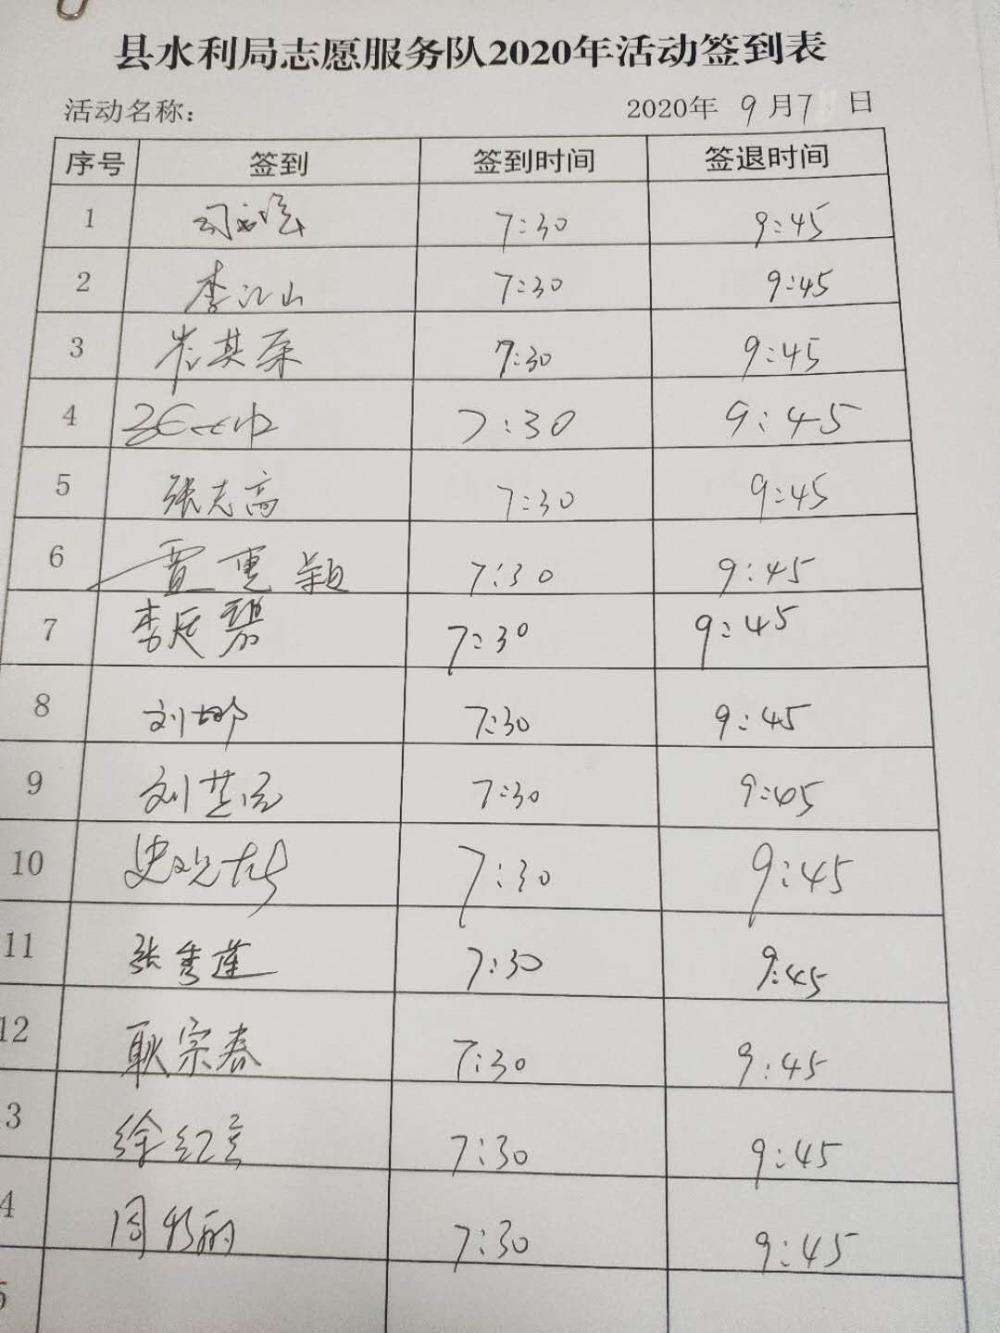 县水利局志愿服务队2020年活动签到表
活动名称: 2020年 9月7日
序号 签到 签到时间 签退时间
1 7:30 9:45
2 李江山 7:30 9:45
3 崔其泰 7:30 9:45
4 7:30 9:45
5 张志高 7:30 9:45
6 贾惠颖 7:30 9:45
7 李廷碧 7:30 9:45
8 刘娜 7:30 9:45
9 刘芝 7:30 9:45
10 史 7:30 9:45
11 张秀莲 7:30 9:45
12 耿宗春 7:30 9:45
3 徐红 7:30 9:45
4 丽 7:30 9:45
5